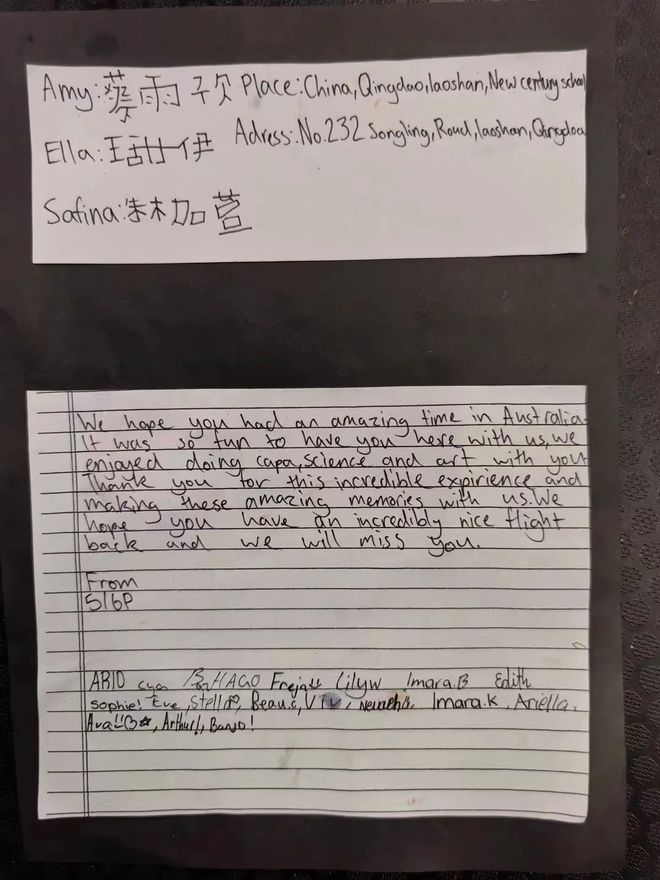 Amy:蔡雨 Place:China,Qingdao,laoshan,New century school
Ella: 甜伊 Adress:No.232 Songling,Roud,laoshan,Qingdoa
Safina:朱林加萱
We hope you had an amazing time in Australia.
It was so fun to have you here with us,we
enjoyed doing capa,science and art with you
Thank you for this incredible expirience and
making these amazing memories with us.We
hope you have an incredibly nice flight
back and we will miss you.
From
5/6P
HAGO Freja Lilyw Imara.B Edith
Sophie! Eve, Stella, Beau.c, Viv, Imara.K, Ariella.
Ava, Arthur!, Banjo!